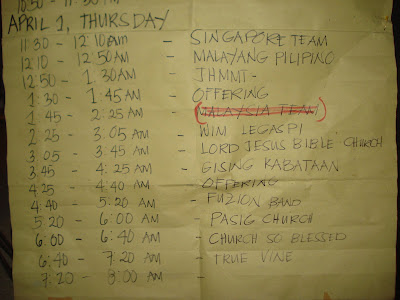 APRIL 1, THURSDAY
11:30 - 12:10am - SINGAPORE TEAM
12:10 - 12:50AM - MALAYANG PILIPINO
12:50 - 1:30AM - JHMMT-
1:30 - 1:45AM - OFFERING
1:45 - 2:25AM - MALAYSIA TEAM
2:25 - 3:05AM - WIM LEGASPI
3:05 - 3:45AM - LORD JESUS BIBLE CHURCH
3:45 - 4:25AM - GISING KABATAAN
4:25 - 4:40AM - OFFERING
4:40 - 5:20AM - FUZION BAND
5:20 - 6:00AM - PASIG CHURCH
6:00 - 6:40AM - CHURCH SO BLESSED
6:40 - 7:20AM - TRUE VINE
7:20 - 8:00AM -